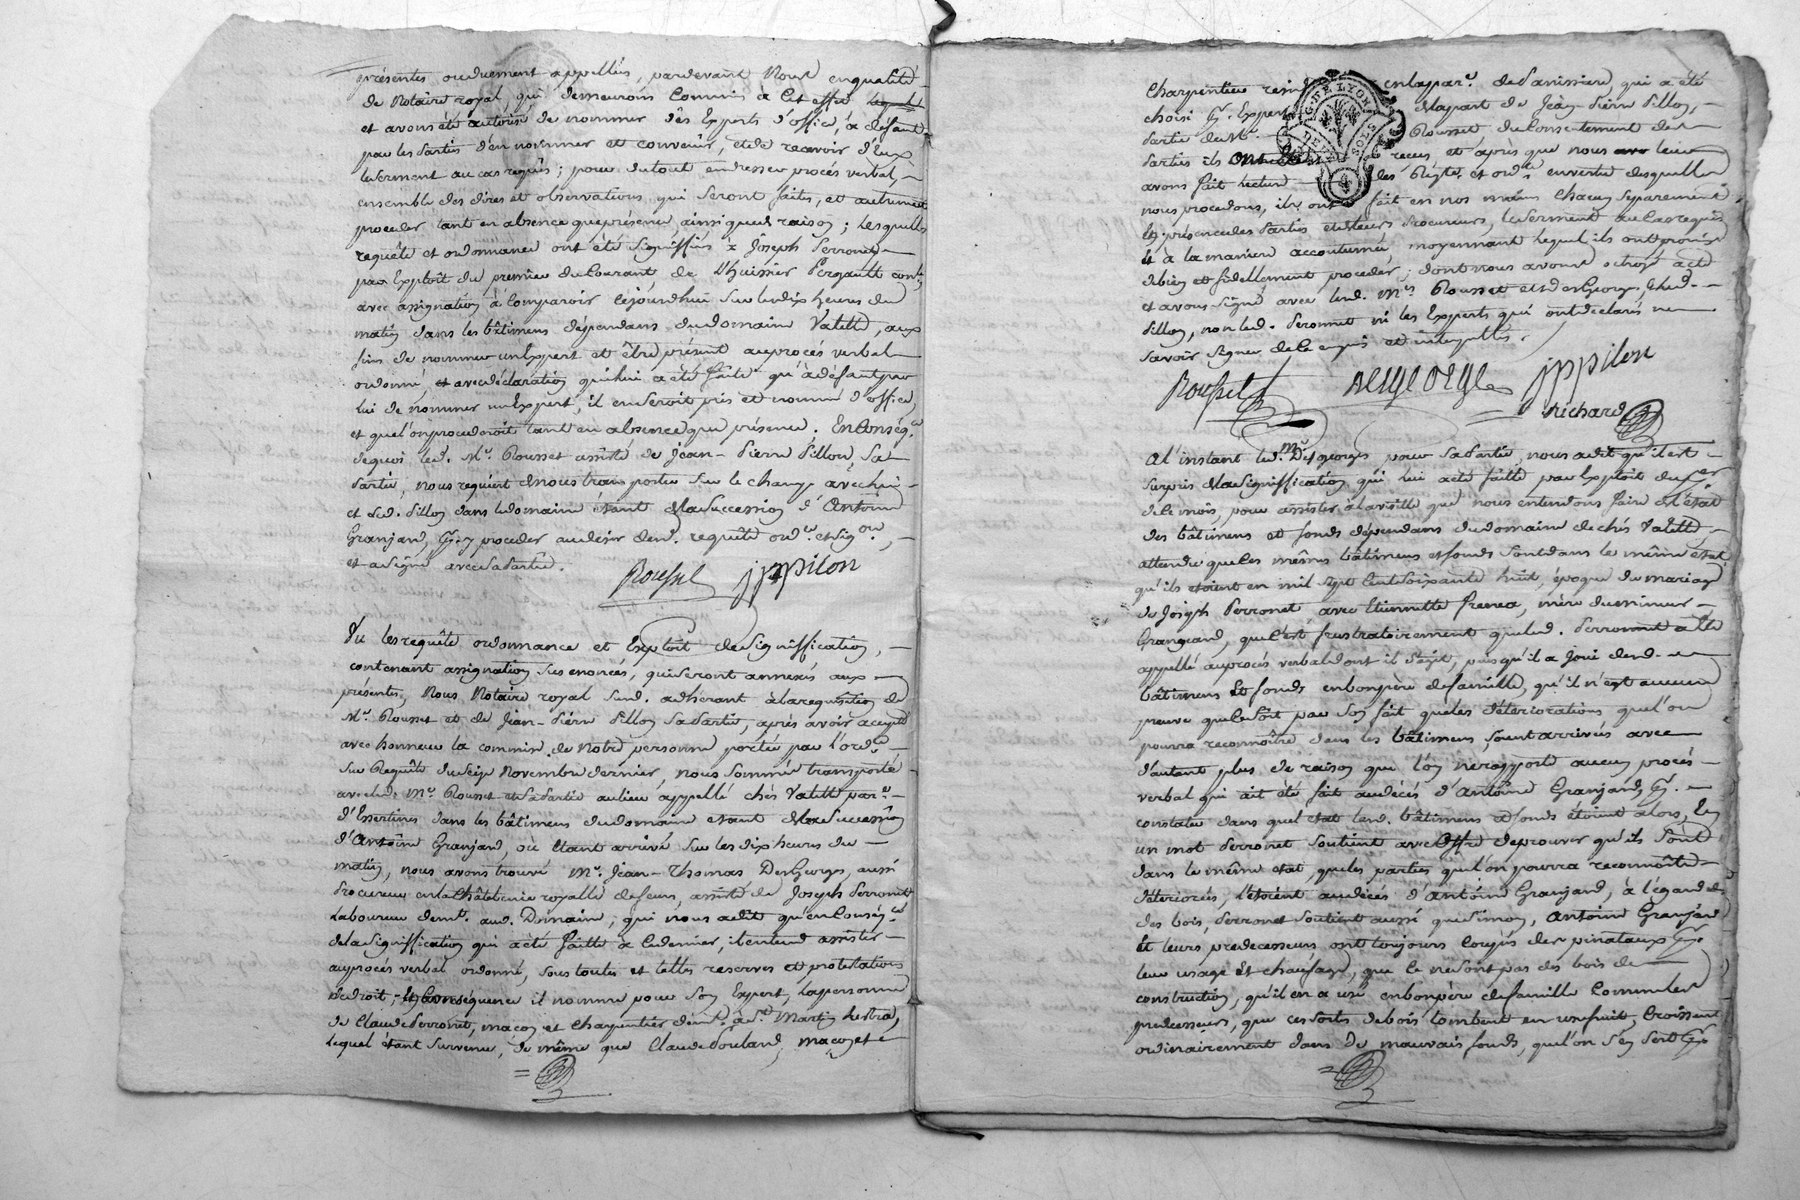 présentes ou duement appellés, pardevant Nous en qualité
de Notaire royal, que demeurons commis à cet effet
et avons été autorisé de nommer des Experts d'office, à défaut
par les Parties d'en nommer et convenir, et de recevoir d'eux
le serment au cas requis ; pour du tout en dresser procés verbal,
ensemble des dires et observations qui seront faites, et autrement
proceder tant en absence que présence, ainsi que de raison ; lesquelles
requête et ordonnance ont été signiffiés à Joseph Perronet
par Exploit du premier du Courant de l'huissier Pergault
avec assignation à Comparoir cejourdhui sur les dix heures du
matin dans les bâtimens dépendans du domaine Valette, aux
fins de nommer un Expert et être présent au procés verbal
ordonné, et avec déclaration qui lui a été faite qu'à défaut par
lui de nommer un Expert, il en seroit pris et nommé d'office,
et que l'on procederoit tant en absence que présence. En conséq.ce
de quoi led. M.e Rousset assisté de Jean-Pierre Pillon, sa
Partie, nous requiert de nous transporter sur le champ avec lui
et led. Pillon dans le domaine étant de la succession d'Antoine
Granjard, p.r y proceder au desir desd. requête ord.ce et sig.on,
et a signé avec sa Partie.
Rousset jppilon
Vu les requête ordonnance et Exploit de signiffication,
contenant assignation sus enoncés, qui seront annexés aux
présentes, Nous Notaire royal susd. adhérant à la requisition de
M.e Rousset et de Jean-Pierre Pillon sa Partie, après avoir accepté
avec honneur la commission de notre personne portée par l'ord.ce
sur Requête du seize Novembre dernier, nous sommes transporté
avec led. M.e Rousset et sa Partie au lieu appellé chés Valette par.e
d'Essertines dans les bâtimens du domaine étant de la succession
d'Antoine Granjard, où étant arrivé sur les dix heures du
matin, nous avons trouvé M.e Jean-Thomas DesGeorges, aussi
Procureur en la Châtelenie royalle de feurs, assisté de Joseph Perronet
Laboureur dem.t aud. Domaine ; qui nous a dit qu'en conséq.ce
de la signiffication qui a été faitte à ce dernier, il entend assister
au procés verbal ordonné, sous toutes et telles reserves et protestations
de droit ; et en conséquence il nomme pour son Expert, la personne
de Claude Perronet, maçon et charpentier dem.t à S.t Martin lestra,
lequel étant survenu, de même que Claude Poulard, maçon et
Charpentier en la par.e de Panissiere qui a été
choisi p.r Expert de la part de Jean Pierre Pillon,
Partie de M.e Rousset du consentement des
Parties ils ont reçus et après que nous leur
avons fait lecture des Req.te et ord.ce en vertu desquelles
nous procedons, ils ont fait en nos mains chacun separement
en présence des Parties et de leurs Procureurs, le serment au cas requis
et à la maniere accoutumée, moyennant lequel ils ont promis
de bien et fidellement proceder ; dont nous avons octroyé acte
et avons signé avec lesd. M.es Rousset et DesGeorges, led.
Pillon, non led. Perronet ni les Experts qui ont déclarés ne
savoir signer de ce enquis et interpellés.
Rousset desgeorges jppilon
Richard
A l'instant led. M.e DesGeorges pour sa Partie, nous a dit qu'il est
surpris de la signiffication qui lui a été faitte par Exploit du p.er
de ce mois, pour assister à la visite que nous entendons faire de l'état
des bâtimens et fonds dépendans du domaine de chés Valette,
attendu que les mêmes bâtimens et fonds sont dans le même état
qu'ils étoient en mil sept cent soixante huit, époque du mariage
de Joseph Perronet avec Etiennette frenea, mère du mineur
Granjard, que c'est frustratoirement que led. Perronet a été
appellé au procés verbal dont il s'agit, puis qu'il a joui desd.
bâtimens et fonds en bon père de famille, qu'il n'est aucune
preuve que ce soit par son fait que les déteriorations que l'on
pourra reconnoître dans les bâtimens, soient arrivés avec
d'autant plus de raison que l'on ne rapporte aucun procés
verbal qui ait été fait au décés d'Antoine Granjard, p.r
constater dans quel état lesd. bâtimens et fonds étoient alors, En
un mot Perronet soutient avec offre de prouver qu'ils sont
dans le même état, que les parties que l'on pourra reconnoître
déteriorés, l'étoient au décés d'Antoine Granjard, à l'égard des
des bois, Perronet soutient aussi que Simon, Antoine Granjard
et leurs predecesseurs ont toujours coupés des pinataux p.r
leur usage et chaufage, que ce ne sont pas des bois de
construction, qu'il en a usé en bon père de famille comme les
predecesseurs, que ces sorts de bois tombent en usufruit, croissent
ordinairement dans de mauvais fonds, que l'on s'en sert p.r
G. DE LYON